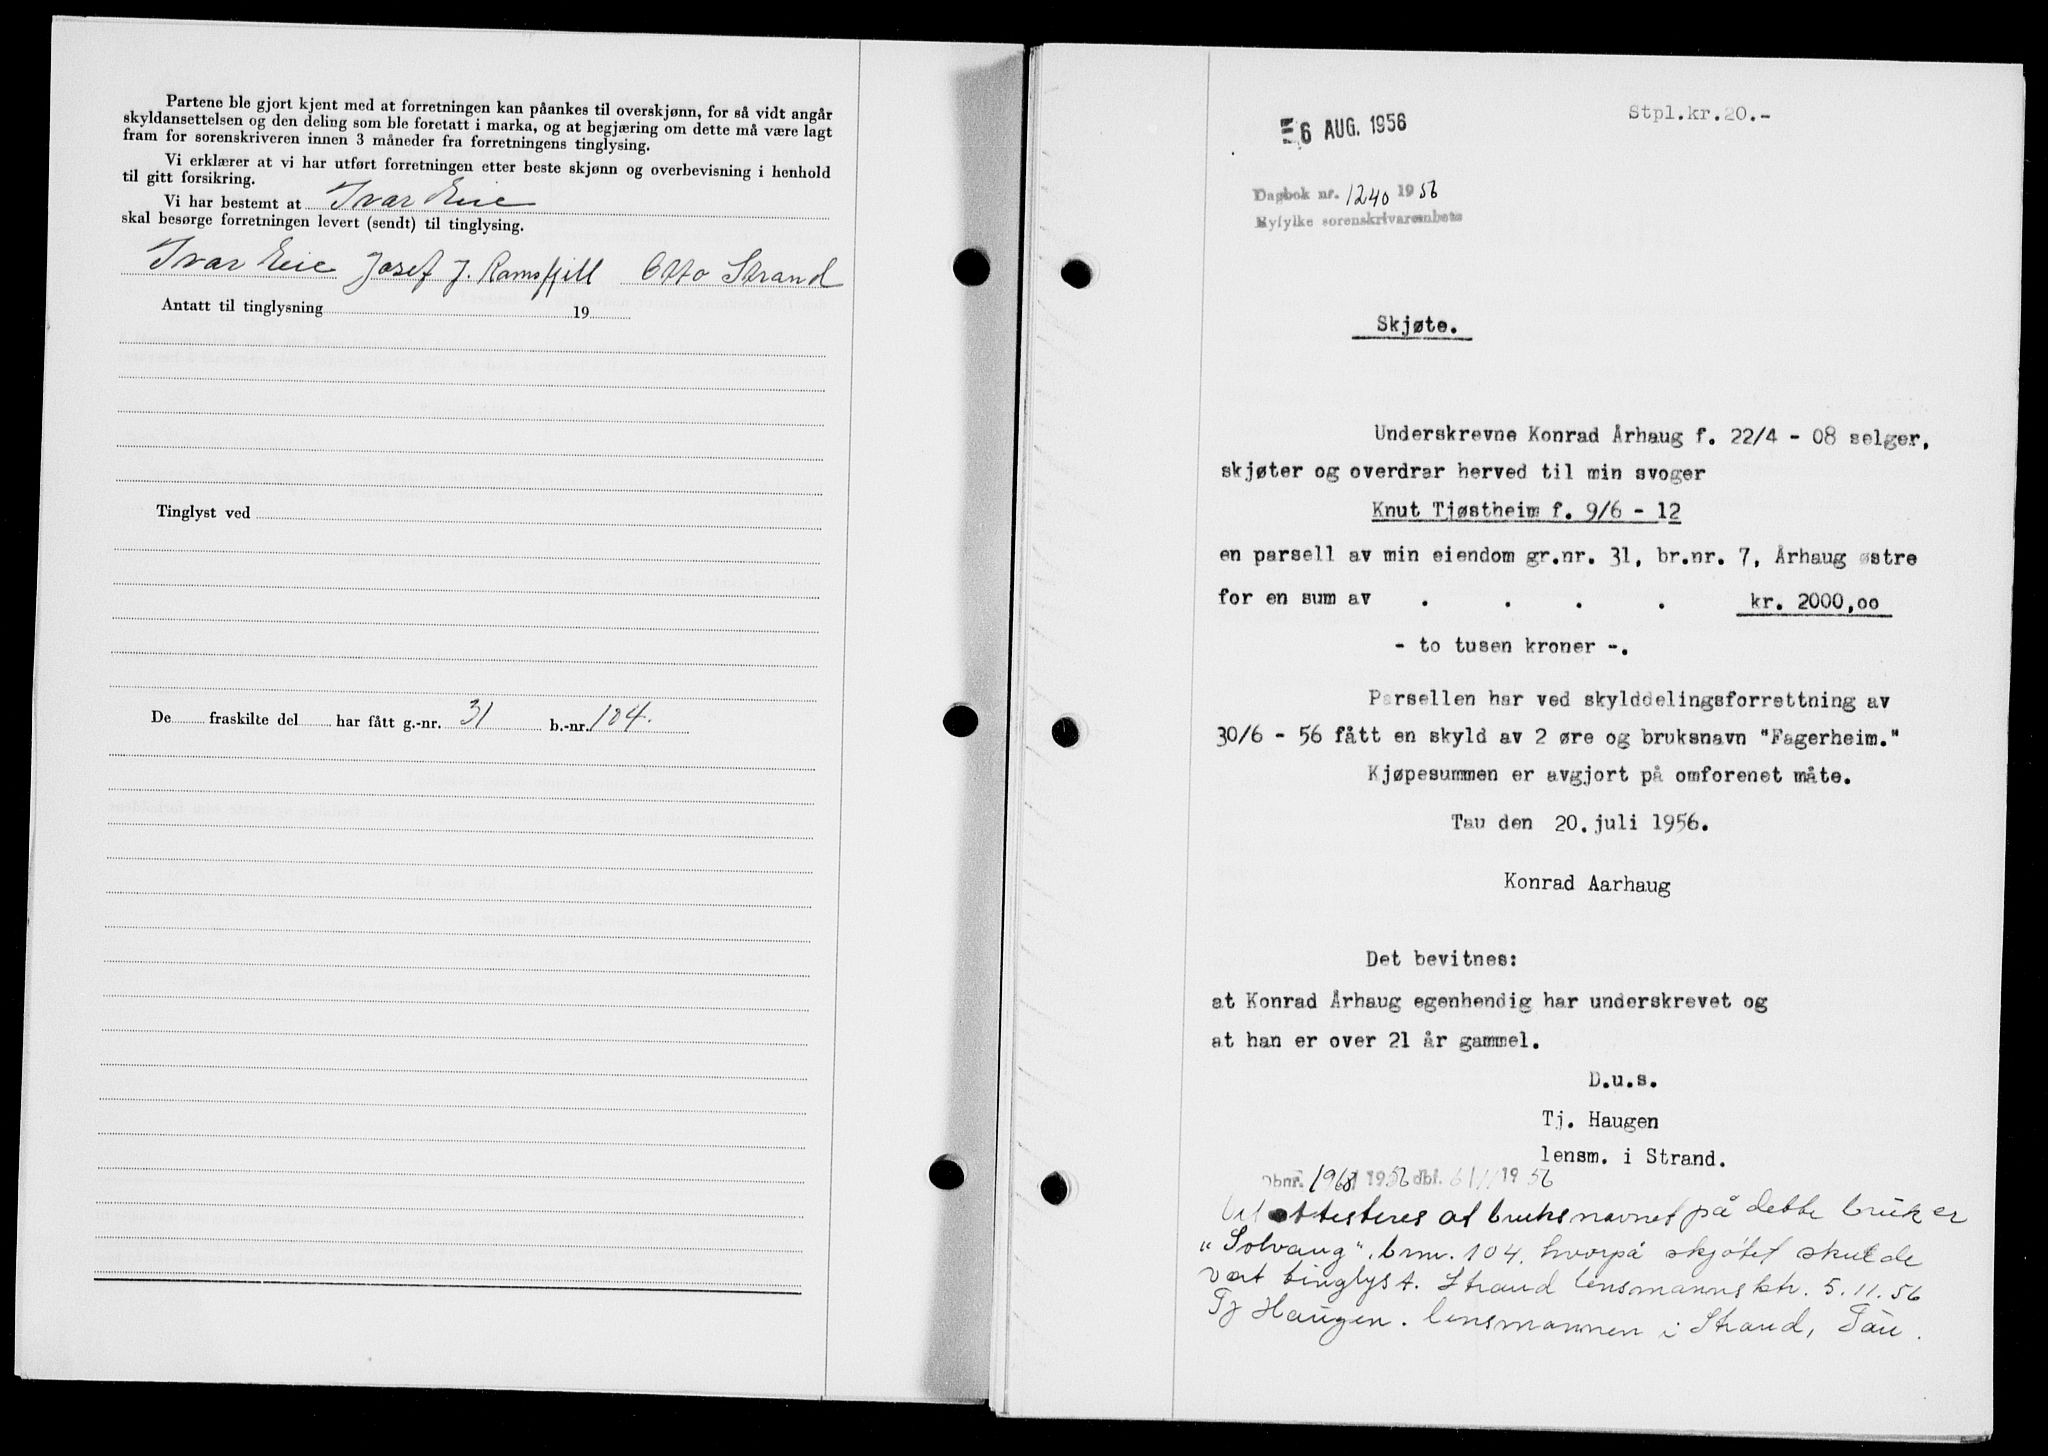 Partene ble gjort kjent med at forretningen kan påankes til overskjønn, for så vidt angår
skyldansettelsen og den deling som ble foretatt i marka, og at begjæring om dette må være lagt
fram for sorenskriveren innen 3 måneder fra forretningens tinglysing.
Vi erklærer at vi har utført forretningen etter beste skjønn og overbevisning i henhold
til gitt forsikring.
Vi har bestemt at Ivar Eie
skal besørge forretningen levert (sendt) til tinglysing.
Ivar Eie Josef J. Ramsfjell Otto Strand
Antatt til tinglysning 19
Tinglyst ved
De fraskilte del har fått g.-nr. 31 b.-nr. 104.
6 AUG. 1956
Stpl.kr.20.-
Dagbok nr. 1240 1956
Ryfylke sorenskrivarembete
Skjøte.
Underskrevne Konrad Århaug f. 22/4 - 08 selger,
skjøter og overdrar herved til min svoger
Knut Tjøstheim f. 9/6 - 12
en parsell av min eiendom gr.nr. 31, br.nr. 7, Århaug østre
for en sum av . . . . kr. 2000,oo
- to tusen kroner -.
Parsellen har ved skylddelingsforrettning av
30/6 - 56 fått en skyld av 2 øre og bruksnavn "Fagerheim."
Kjøpesummen er avgjort på omforenet måte.
Tau den 20. juli 1956.
Konrad Aarhaug
Det bevitnes:
at Konrad Århaug egenhendig har underskrevet og
at han er over 21 år gammel.
D.u.s.
Tj. Haugen
lensm. i Strand.
Dbnr. 1968 1956 dbf. 6/11 1956
attesteres at bruksnavnet på dette bruk er
"Solvang", brnr. 104, hvorpå skjøtet skulde
vært tinglyst. Strand lensmannsktr. 5.11.56
Tj Haugen. lensmannen i Strand, Tau.